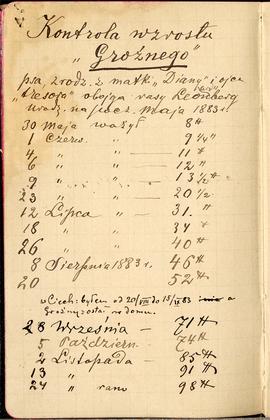 Kontrola wzrostu
"Groźnego"
psa zrodz. z matk. "Diany" i ojca
"Cresoja" obojga rasy Leonberg
urodz. na pocz. Maja 1883 r.
30 Maja ważył 8 ℔
1 Czerw. " 9 ¼ "
4 " " — 11 "
6 " " — 12 "
9 " " — 13 ½ "
23 " " — 20 ½
12 Lipca " — 31. "
18 " " 34 "
26 " — 40 ℔
8 Sierpnia 1883 r. 46 ℔
20 — 52 ℔
w Ciech. byłem od 20/VIII do 15/IX 83 a
Groźny został w domu.
28 Września — 71 ℔
5 Październ. — 74 ℔
2 Listopada — 85 ℔
13 " — 91 ℔
24 " rano 98 ℔